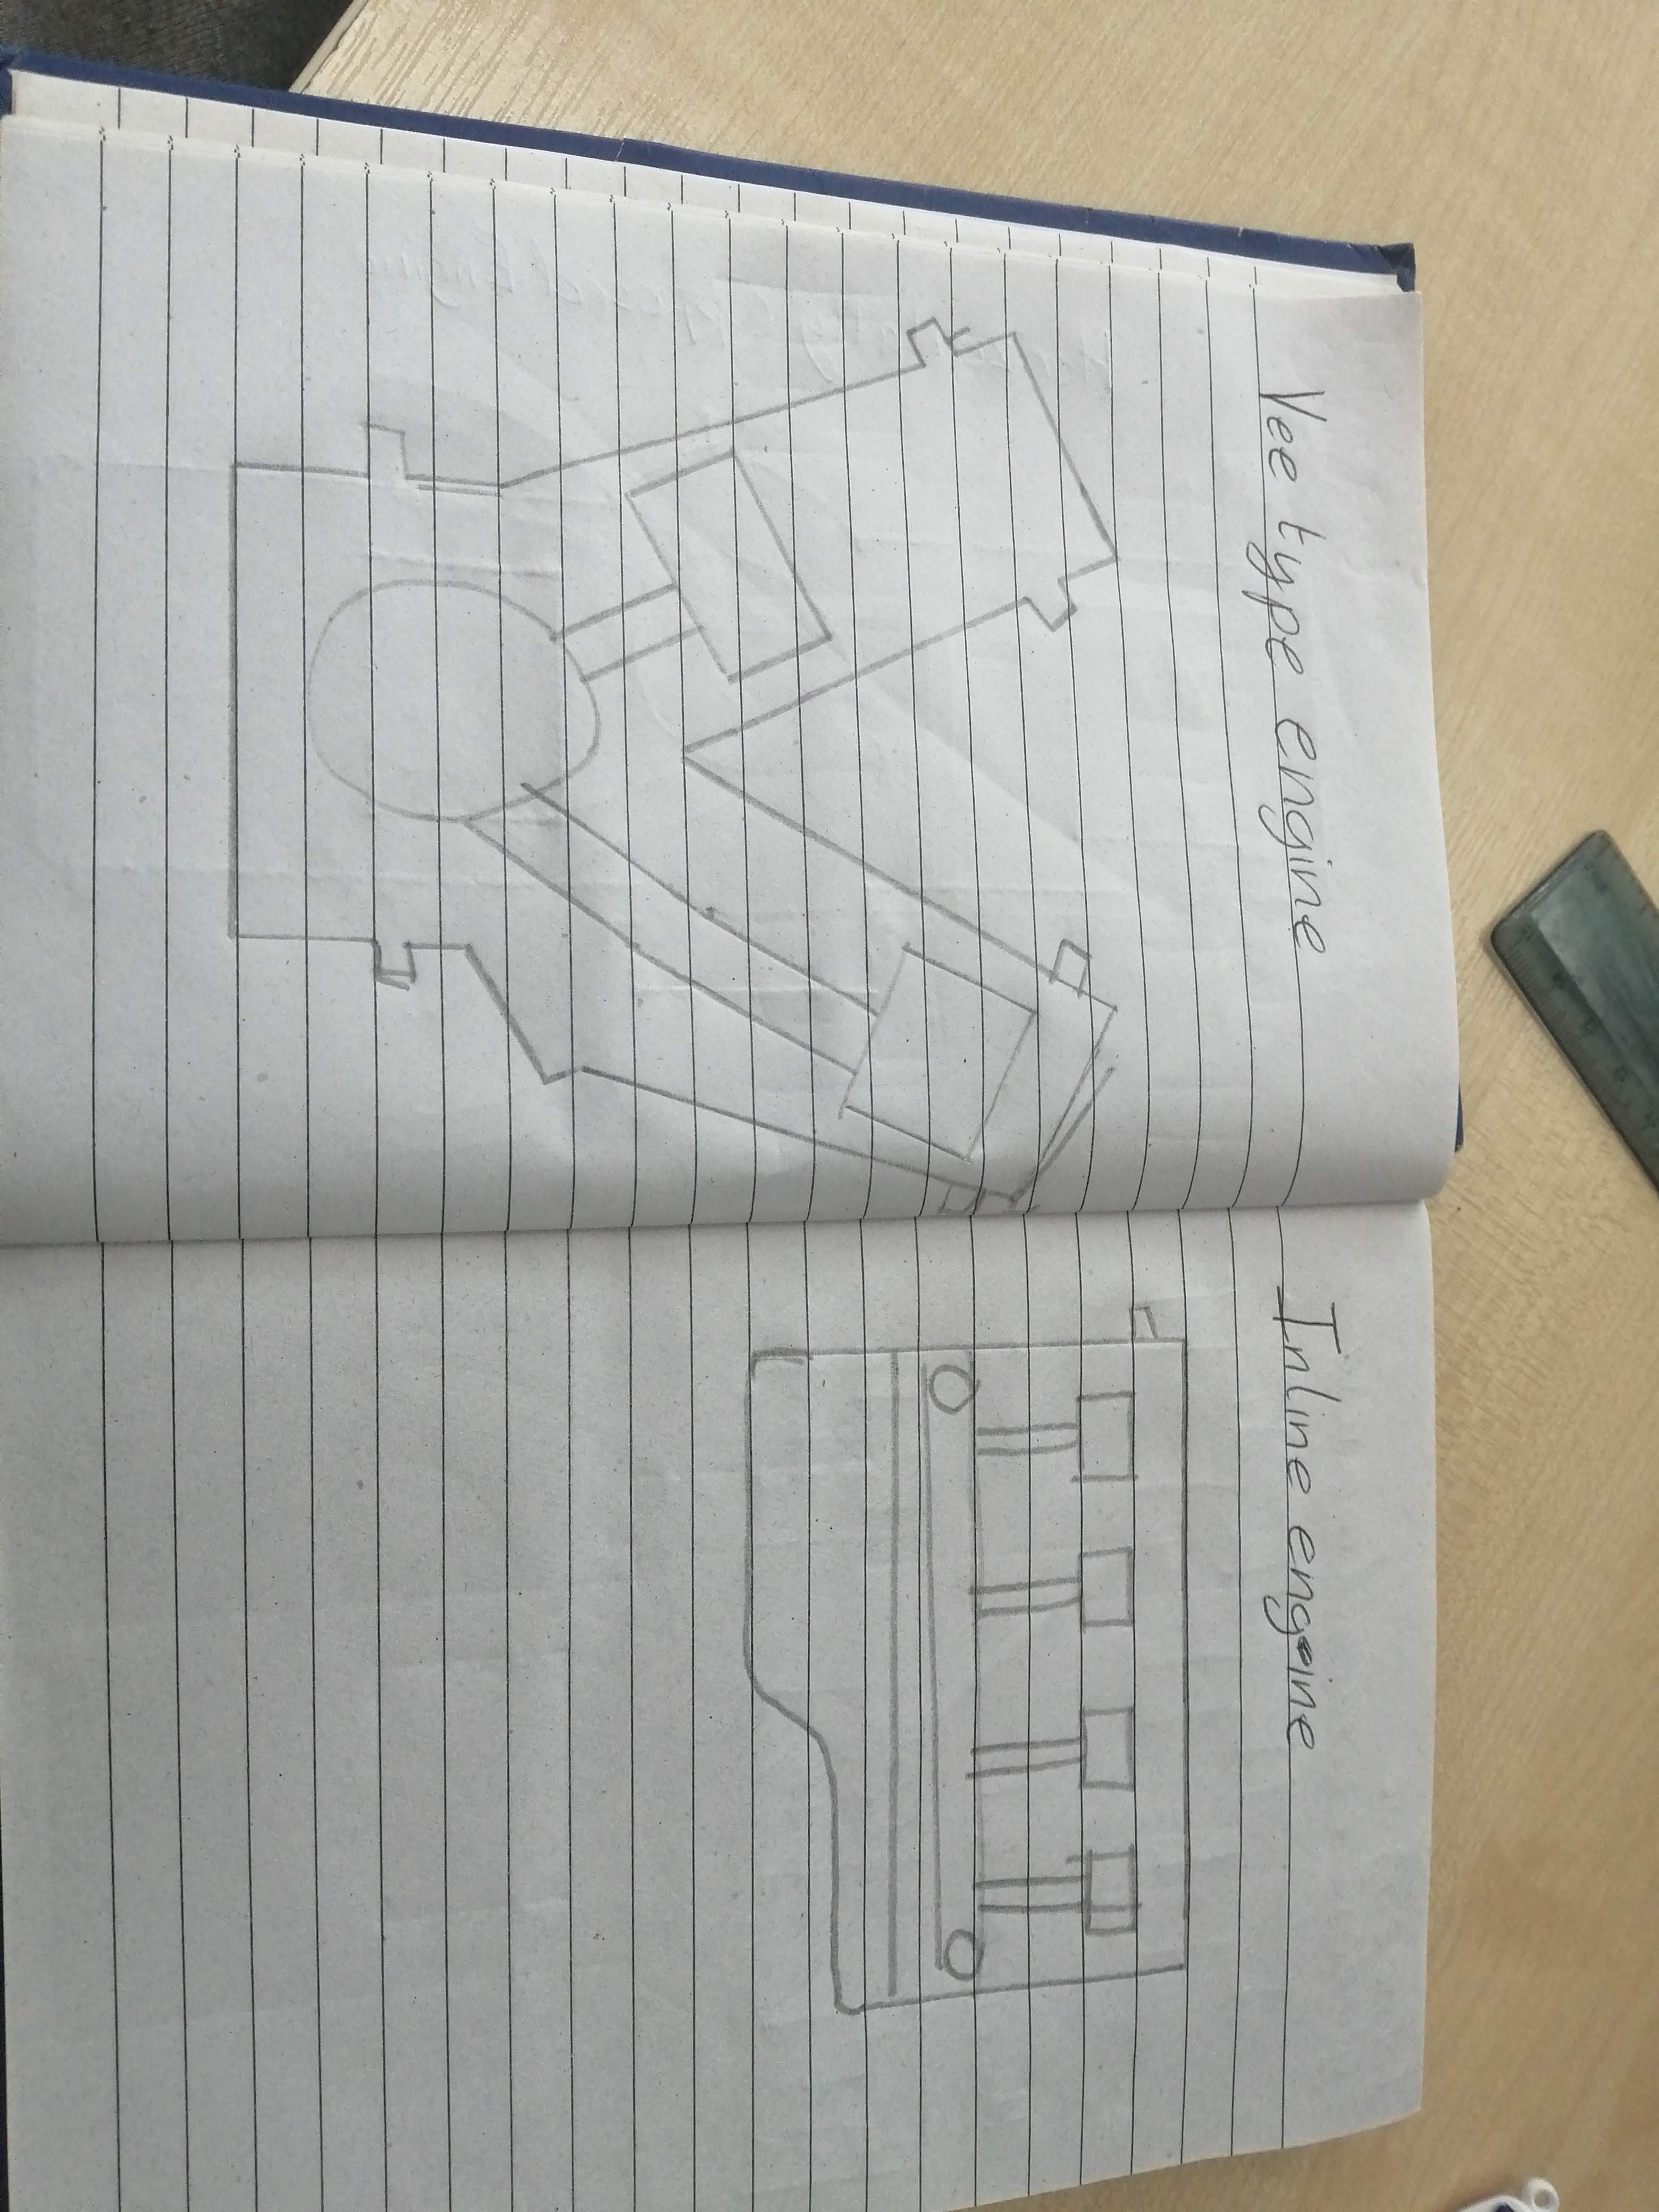 Vee type engine
Inline engine